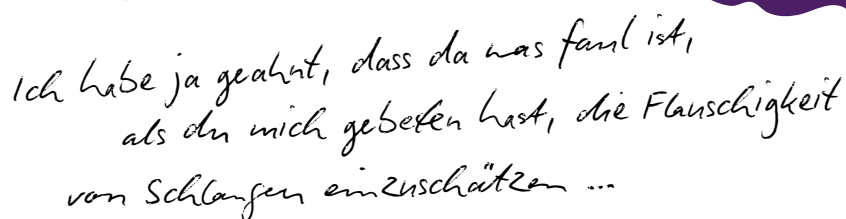 Ich habe ja geahnt, dass da was faul ist,
als du mich gebeten hast, die Flauschigkeit
von Schlangen einzuschätzen ...